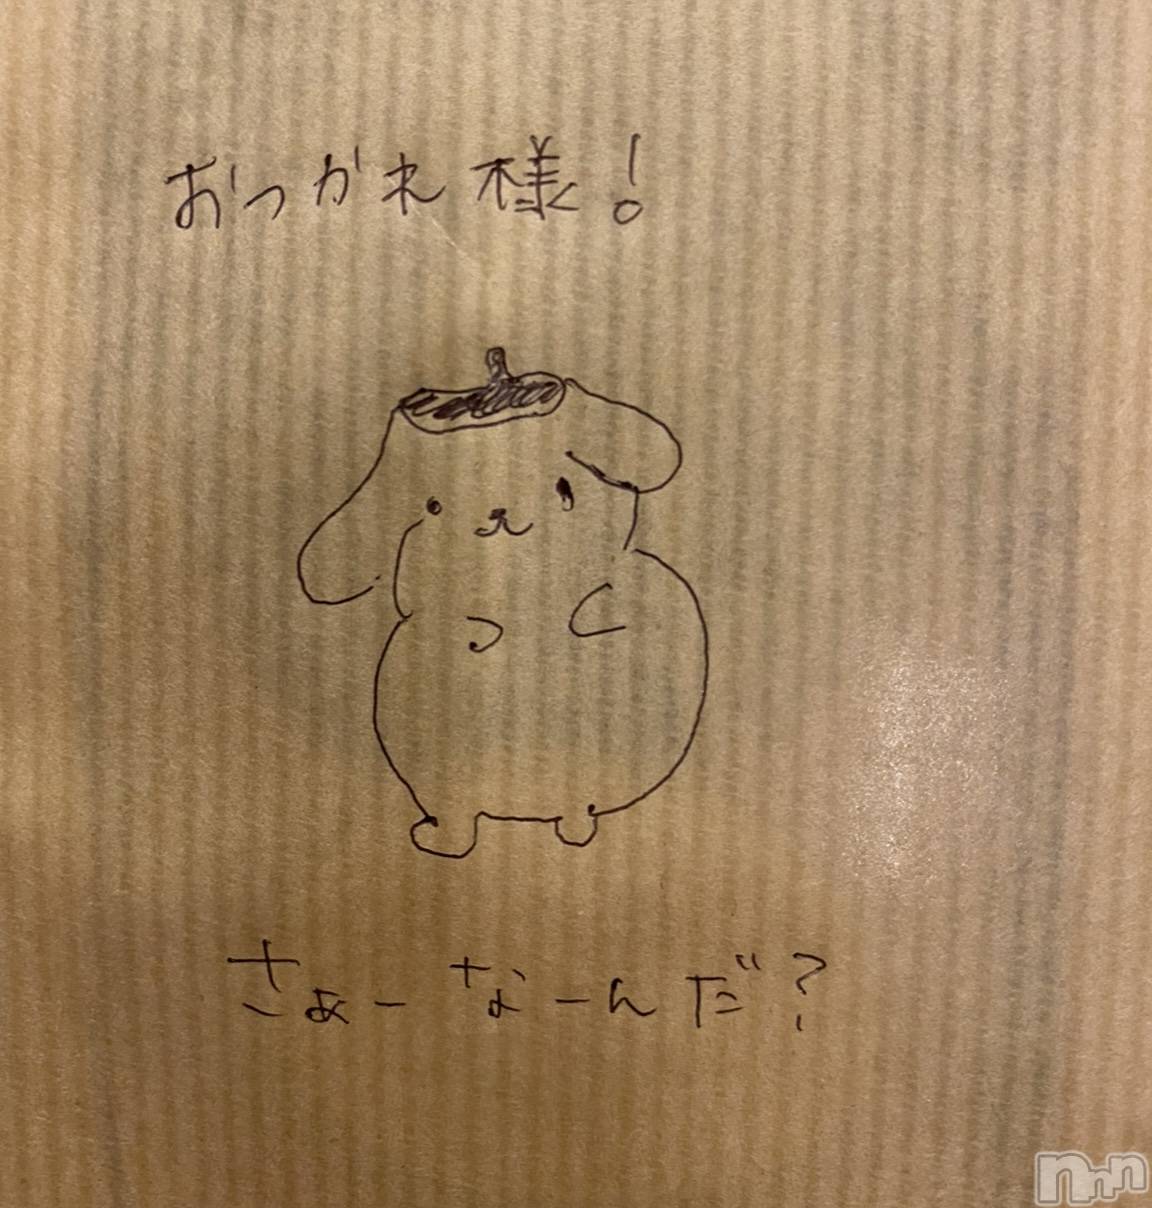 おつかれ様!
さぁーなーんだ?
nnn